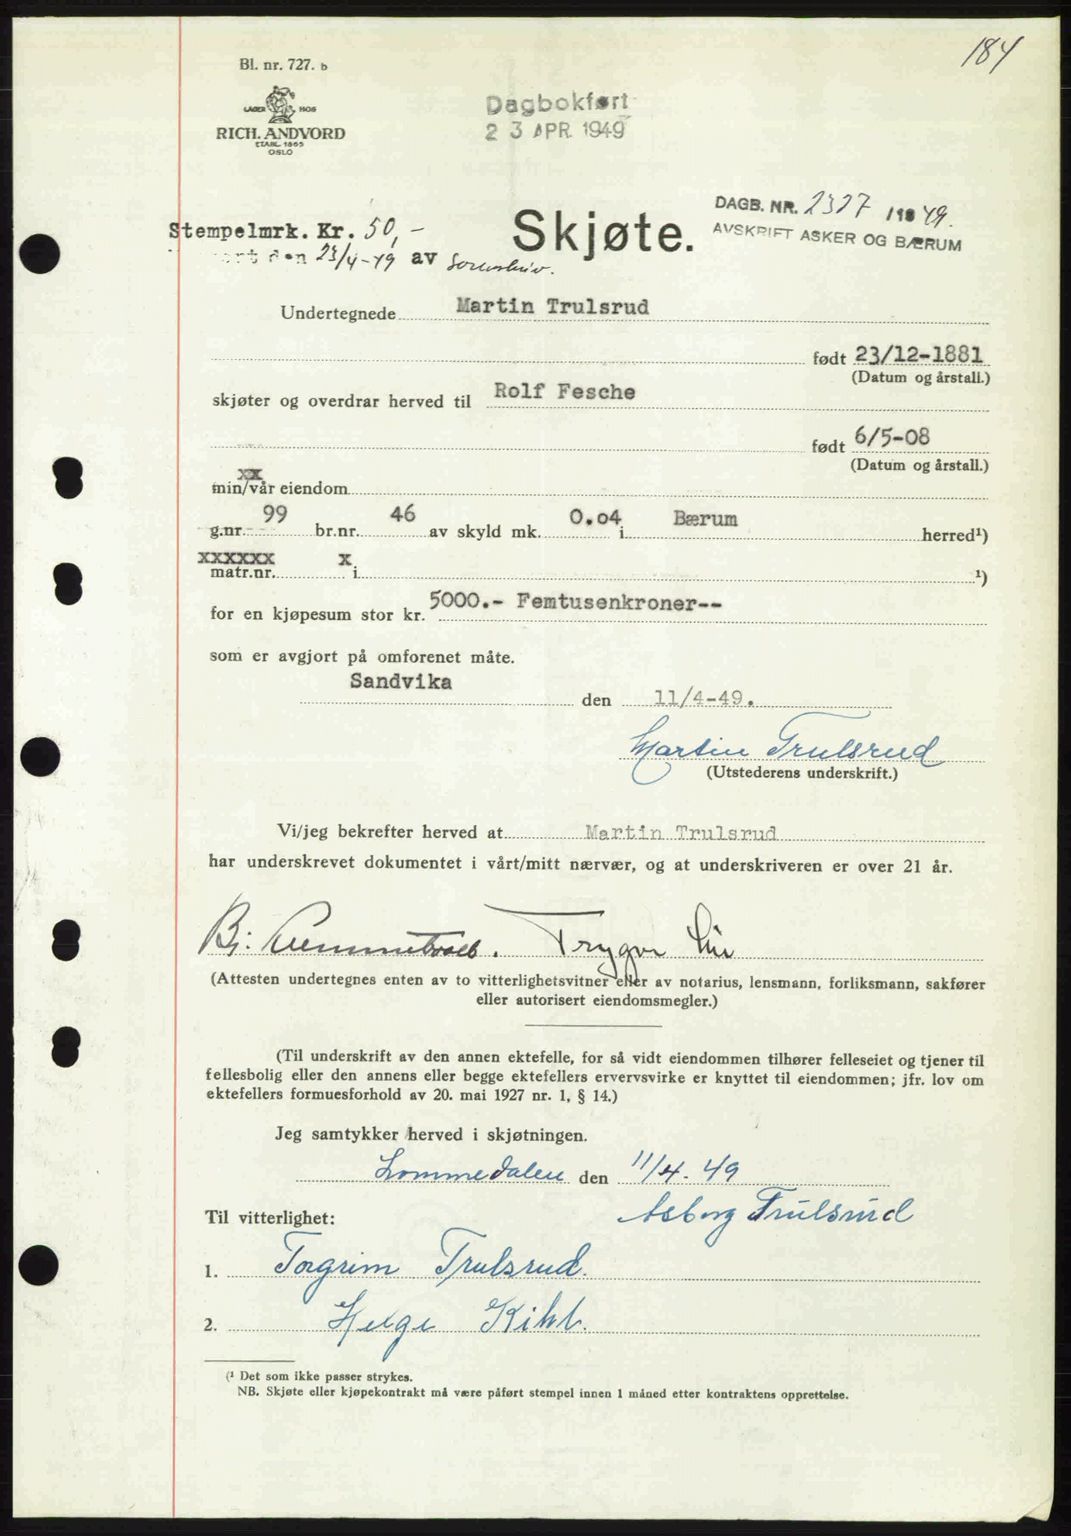 184
Bl. nr. 727. b
LAGER HOS
RICH. ANDVORD
ETABL. 1865
OSLO
Dagbokført
23 APR. 1949
DAGB. NR. 2327 /1949.
AVSKRIFT ASKER OG BÆRUM
Stempelmrk. Kr. 50,-
den 23/4-49 av
Skjøte.
Undertegnede Martin Trulsrud
født 23/12-1881
(Datum og årstall.)
skjøter og overdrar herved til Rolf Fesche
født 6/5-08
(Datum og årstall.)
xx
min/vår eiendom
g.nr. 99 br.nr. 46 av skyld mk. 0.04 i Bærum herred¹)
xxxxxx x
matr.nr. i ¹)
for en kjøpesum stor kr. 5000.- Femtusenkroner--
som er avgjort på omforenet måte.
Sandvika den 11/4-49.
Martin Trulsrud
(Utstederens underskrift.)
Vi/jeg bekrefter herved at Martin Trulsrud
har underskrevet dokumentet i vårt/mitt nærvær, og at underskriveren er over 21 år.
Bj. Trygve Lie
(Attesten undertegnes enten av to vitterlighetsvitner eller av notarius, lensmann, forliksmann, sakfører
eller autorisert eiendomsmegler.)
(Til underskrift av den annen ektefelle, for så vidt eiendommen tilhører felleseiet og tjener til
fellesbolig eller den annens eller begge ektefellers ervervsvirke er knyttet til eiendommen; jfr. lov om
ektefellers formuesforhold av 20. mai 1927 nr. 1, § 14.)
Jeg samtykker herved i skjøtningen.
Lommedalen den 11/4-49
Asborg Trulsrud
Til vitterlighet:
1. Torgrim Trulsrud.
2. Helge Kihl.
(¹ Det som ikke passer strykes.
NB. Skjøte eller kjøpekontrakt må være påført stempel innen 1 måned etter kontraktens opprettelse.